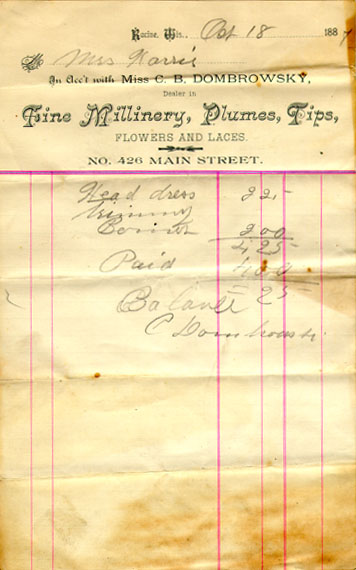 Racine, Wis., Oct 18 1887
M Mrs Harris
In Acc't with Miss C. B. DOMBROWSKY,
Dealer in
Fine Millinery, Plumes, Tips,
FLOWERS AND LACES.
NO. 426 MAIN STREET.
Head dress 2 25
Triming
Bonnet 2 00
4 25
Paid 4 00
Balance 25
C Dombrowsky